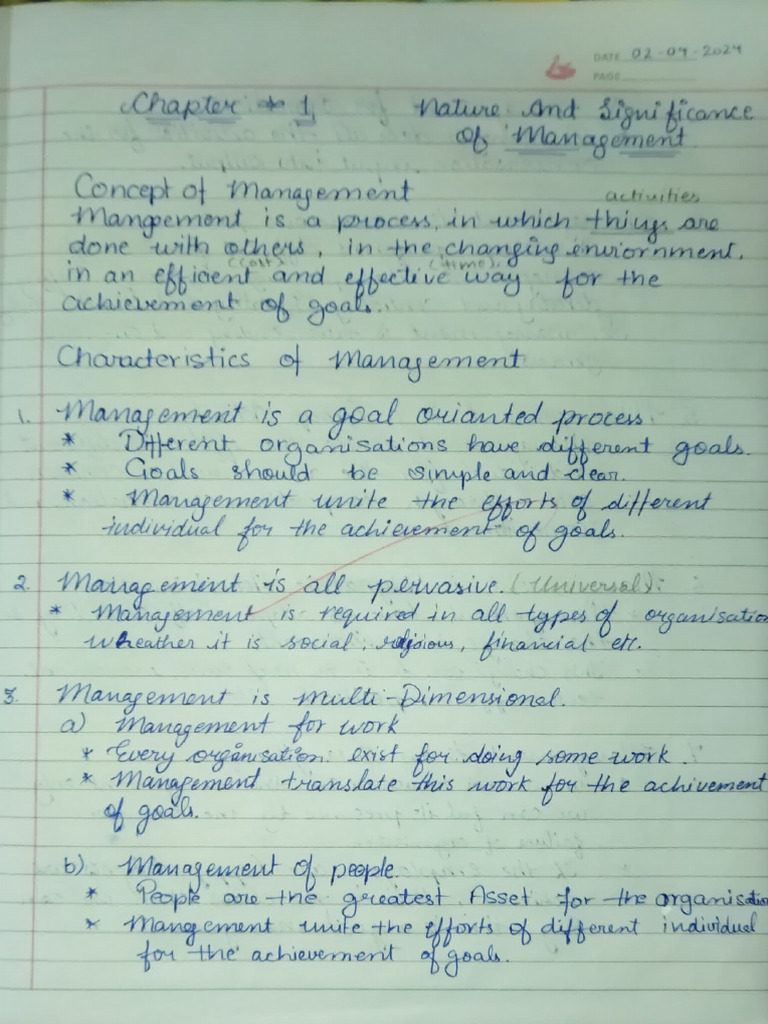 DATE 02-04-2024
PAGE
Chapter * 1, Nature And Significance
of Management
Concept of Management
activities
Mangement is a process, in which things are
done with others, in the changing enviornment,
(cost) (time)
in an efficient and effective way for the
achievement of goals.
Characteristics of Management
1. Management is a goal orianted process.
* Different organisations have different goals.
* Goals should be simple and clear.
* Management unite the efforts of different
individual for the achievement of goals.
2. Management is all pervasive. (Universal):
* Management is required in all types of organisation
wheather it is social, religious, financial etc.
3. Management is Multi-Dimensional.
a) Management for work
* Every organisation exist for doing some work.
* Management translate this work for the achivement
of goals.
b) Management of people.
* People are the greatest Asset for the organisation
* Management unite the efforts of different individual
for the achievement of goals.